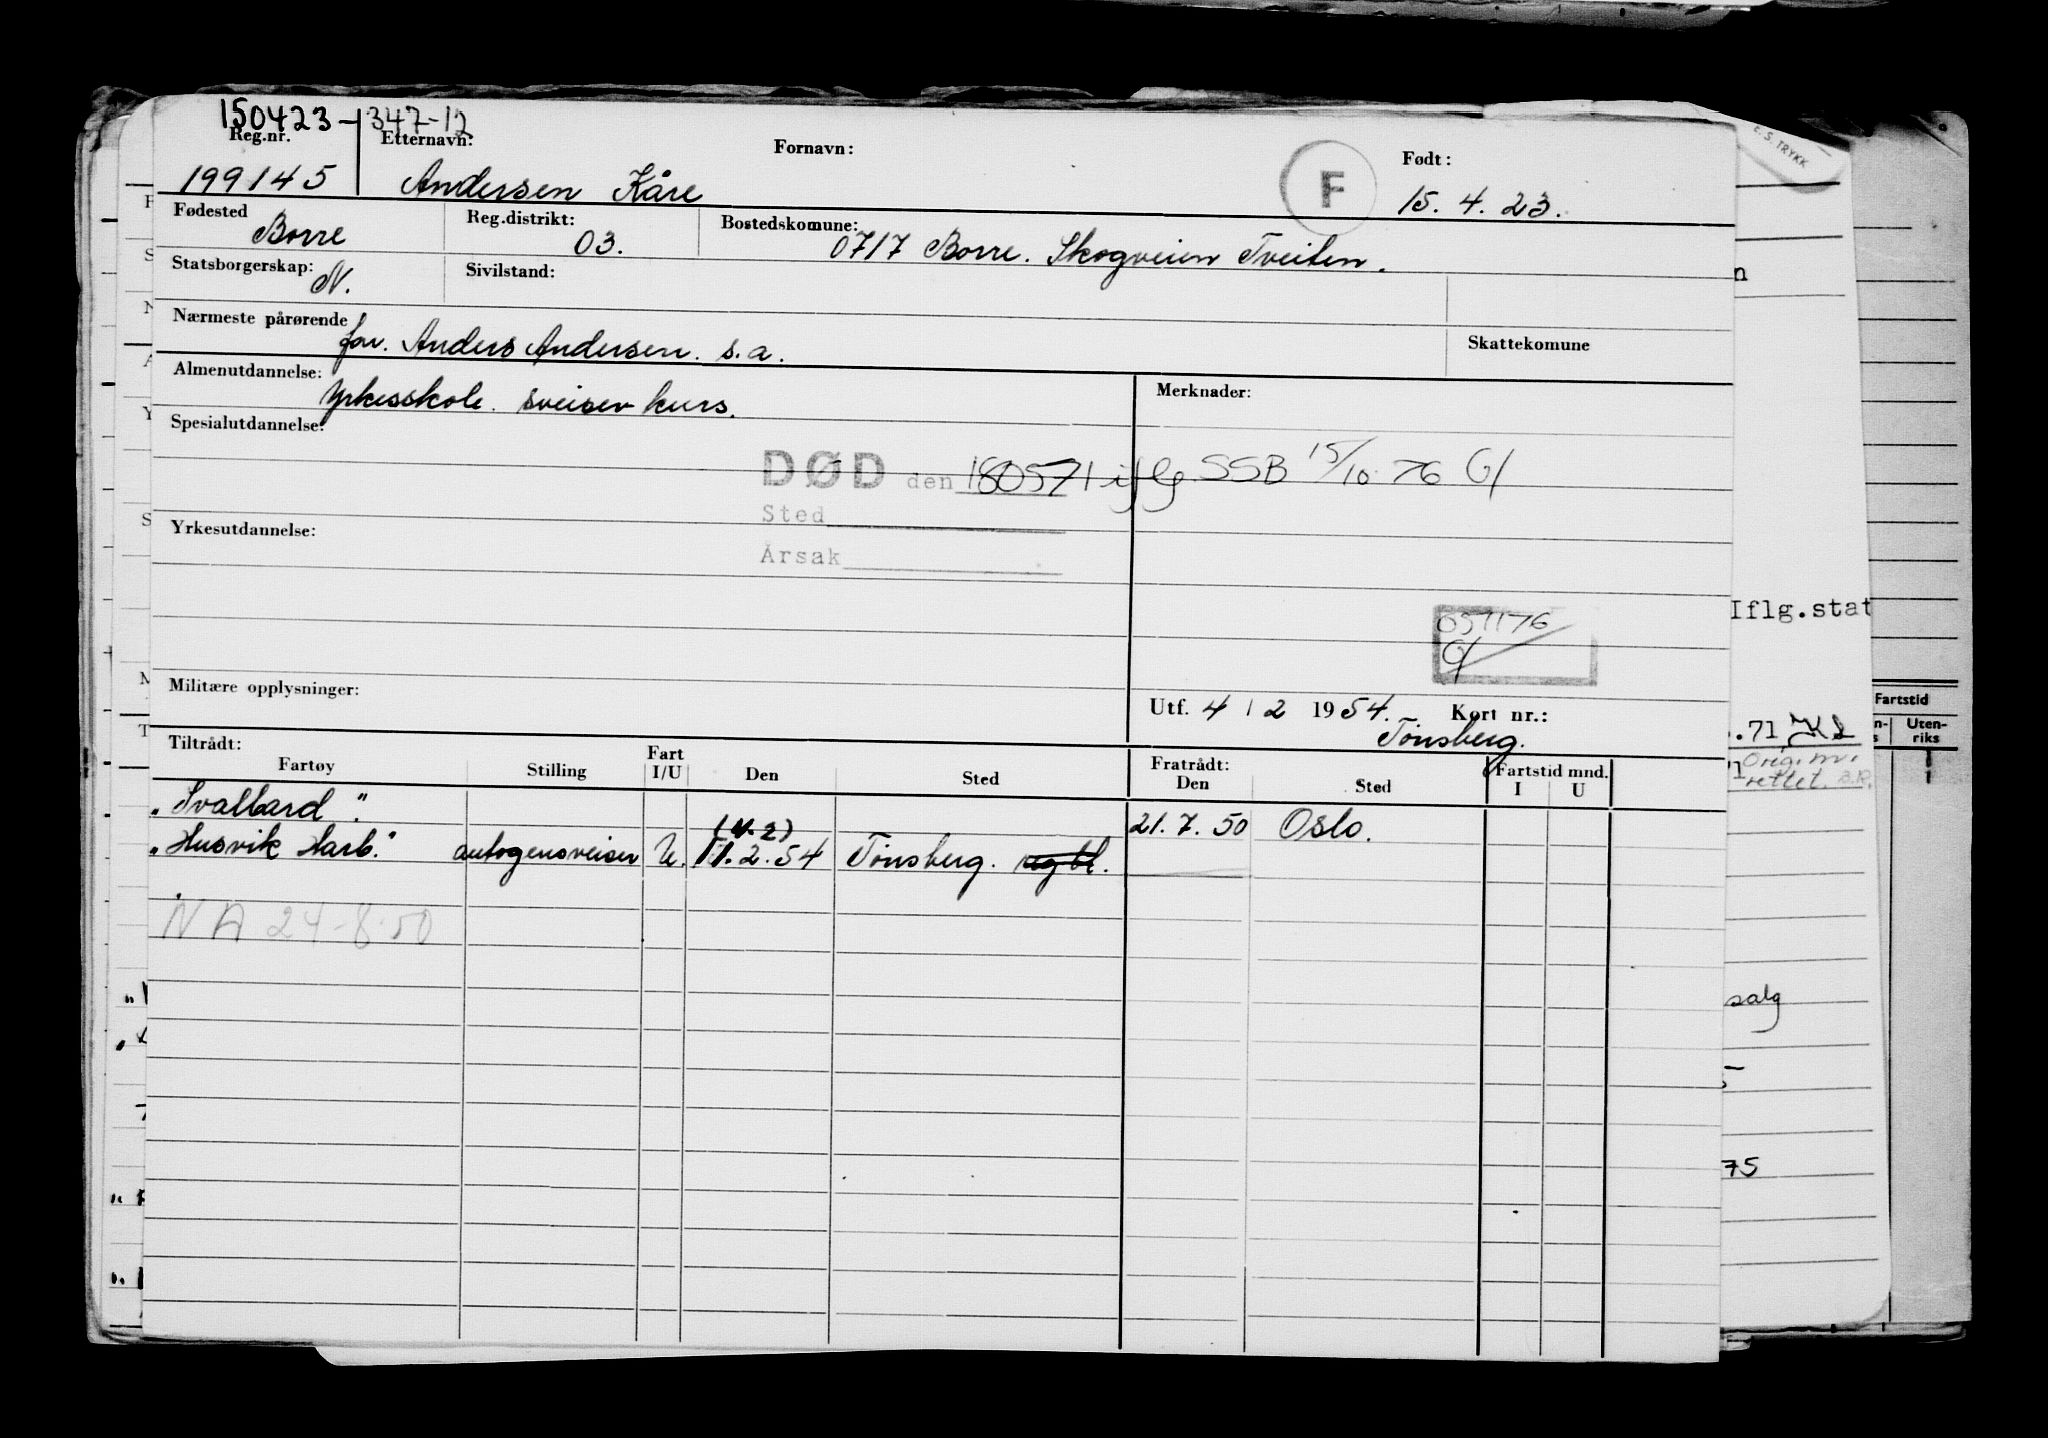 150423-347-12
Reg.nr. Etternavn: Fornavn: Født:
199145 Andersen Kåre F 15.4.23.
Fødested Reg.distrikt: Bostedskomune:
Borre 03. 0717 Borre. Skogveien Tveiten.
Statsborgerskap: Sivilstand:
N.
Nærmeste pårørende Skattekomune
far. Anders Andersen. s.a.
Almenutdannelse: Merknader:
Yrkesskole. sveiser kurs.
Spesialutdannelse:
DØD den 180571 iflg SSB 15/10-76 G/
Sted
Yrkesutdannelse:
Årsak
051176
G/
Iflg.stat
Militære opplysninger:
Utf. 4/2 1954. Kort nr.:
Tønsberg.
Tiltrådt: Fratrådt: Fartstid mnd.
Fartøy Stilling Fart I/U Den Sted Den Sted I U
"Svalbard". 21.7.50 Oslo.
(4.2)
"Husvik Harb." autogensveiser U. 11.2.54 Tønsberg.
NA 24-8-50
E.S. TRYKK
Fartstid
Uten-
riks
.71
Orig.m.
rettet. B.R.
salg
75